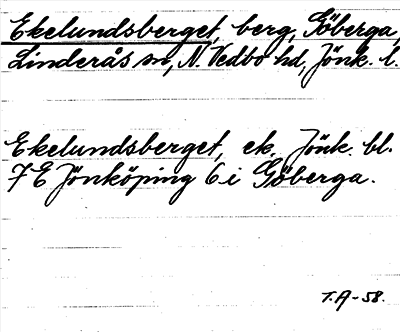 Ekelundsberget, berg, Göberga,
Linderås sn, N. Vedbo hd, Jönk. l.
Ekelundsberget, ek. Jönk. bl.
7E Jönköping 6i Göberga.
T.A-58.